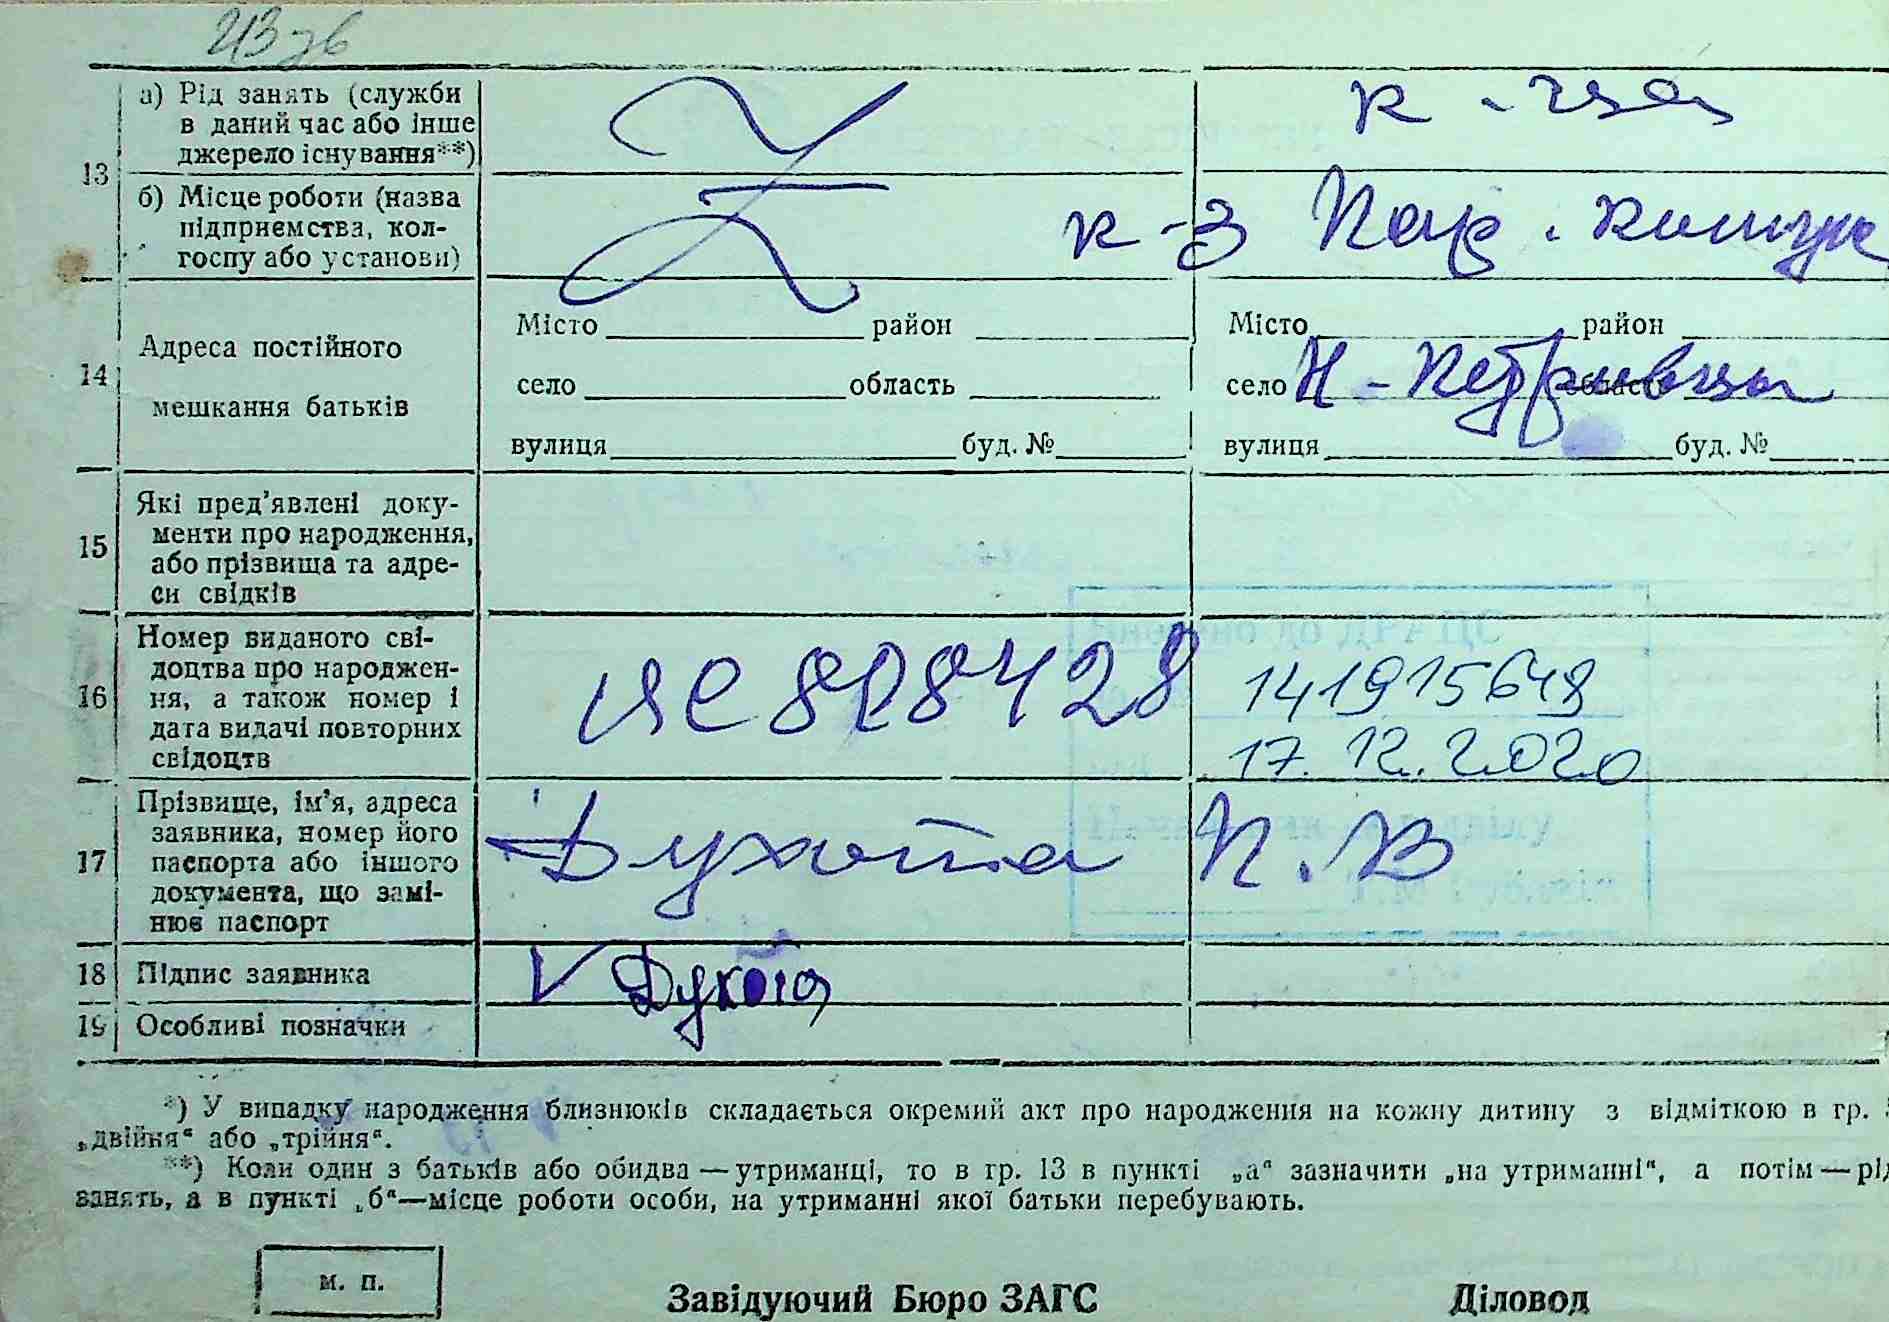 13
а) Рід занять (служби
в даний час або інше
джерело існування**)
к-ця
б) Місце роботи (назва
підприємства, кол-
госпу або установи)
к-з
14
Адреса постійного
мешкання батьків
Місто район
село область
вулиця буд. №
Місто район
село Н-Петрівці область
вулиця буд. №
15
Які пред'явлені доку-
менти про народження,
або прізвища та адре-
си свідків
16
Номер виданого сві-
доцтва про народжен-
ня, а також номер і
дата видачі повторних
свідоцтв
828428
141915648
17.12.2020
17
Прізвище, ім'я, адреса
заявника, номер його
паспорта або іншого
документа, що замі-
нює паспорт
Духота П.В
18
Підпис заявника
V Духота
19
Особливі позначки
*) У випадку народження близнюків складається окремий акт про народження на кожну дитину з відміткою в гр.
„двійня“ або „трійня“.
**) Коли один з батьків або обидва — утриманці, то в гр. 13 в пункті „а“ зазначити „на утриманні“, а потім — рід
занять, а в пункті „б“—місце роботи особи, на утриманні якої батьки перебувають.
м. п.
Завідуючий Бюро ЗАГС
Діловод